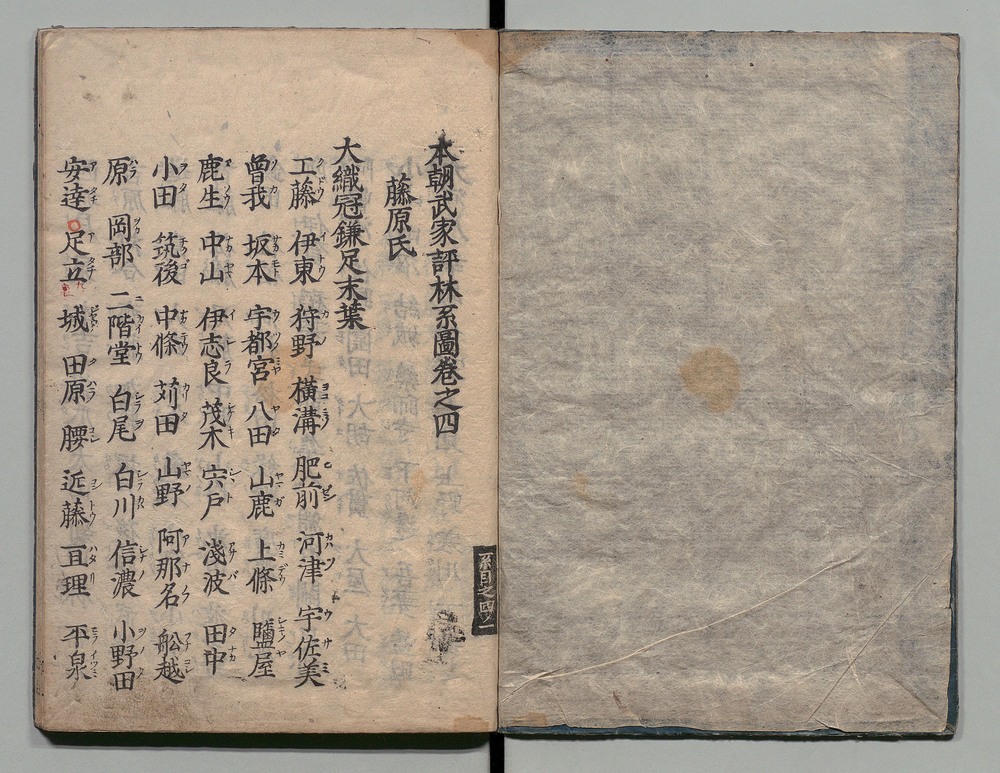 本朝武家評林系圖卷之四
藤原氏
大織冠鎌足末葉
工藤 伊東 狩野 橫溝 肥前 河津 宇佐美
曾我 坂本 宇都宮 八田 山鹿 上條 鹽屋
鹿生 中山 伊志良 茂木 宍戸 淺波 田中
小田 筑後 中條 苅田 山野 阿那名 舩越
原 岡部 二階堂 白尾 白川 信濃 小野田
安達 足立 城 田原 腰 近藤 亘理 平泉
系目之四ノ一